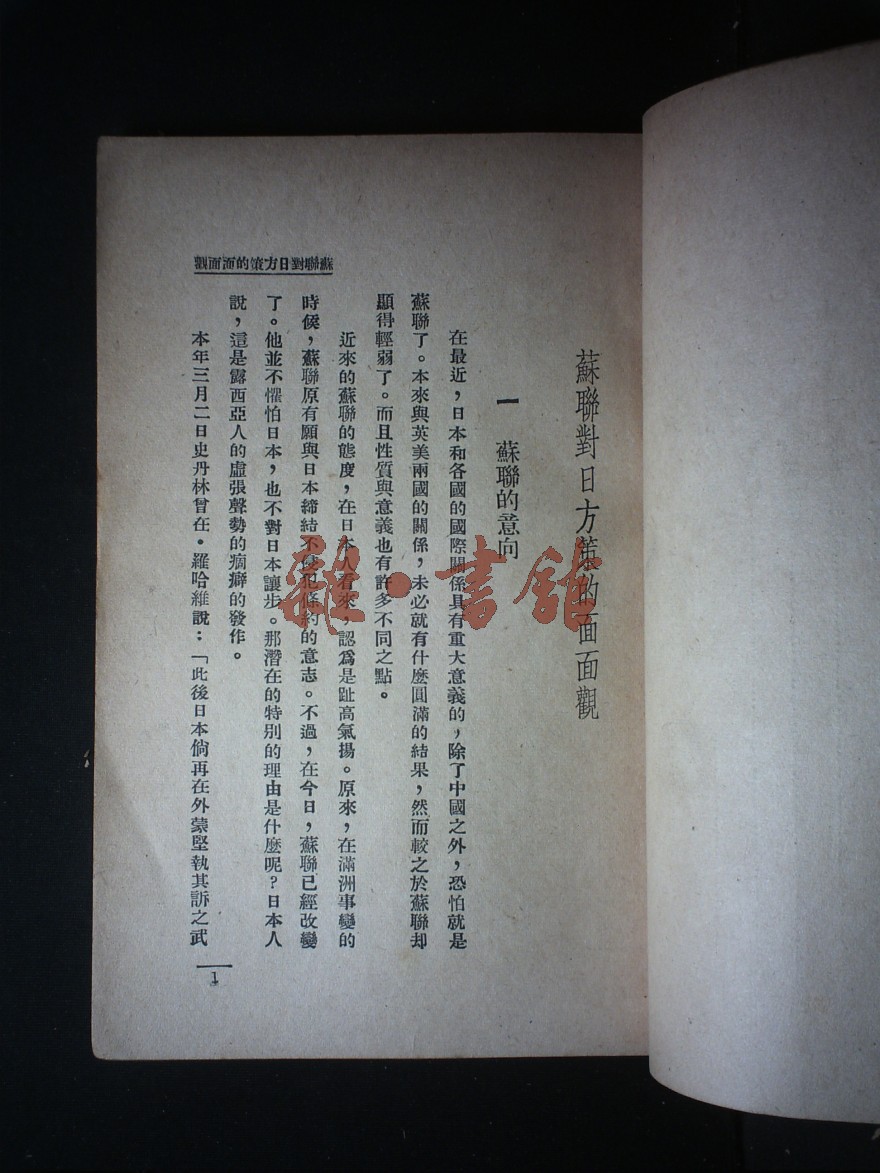 蘇聯對日方策的面面觀
一　蘇聯的意向
在最近，日本和各國的國際關係具有重大意義的，除了中國之外，恐怕就是
蘇聯了。本來與英美兩國的關係，未必就有什麼圓滿的結果，然而較之於蘇聯却
顯得輕弱了。而且性質與意義也有許多不同之點。
近來的蘇聯的態度，在日本人看來，認爲是趾高氣揚。原來，在滿洲事變的
時候，蘇聯原有願與日本締結不侵犯條約的意志。不過，在今日，蘇聯已經改變
了。他並不懼怕日本，也不對日本讓步。那潛在的特別的理由是什麼呢？日本人
說，這是露西亞人的虛張聲勢的痼癖的發作。
本年三月二日史丹林曾在・羅哈維說：「此後日本倘再在外蒙堅執其訴之武
蘇聯對日方策的面面觀
1
雜・書館